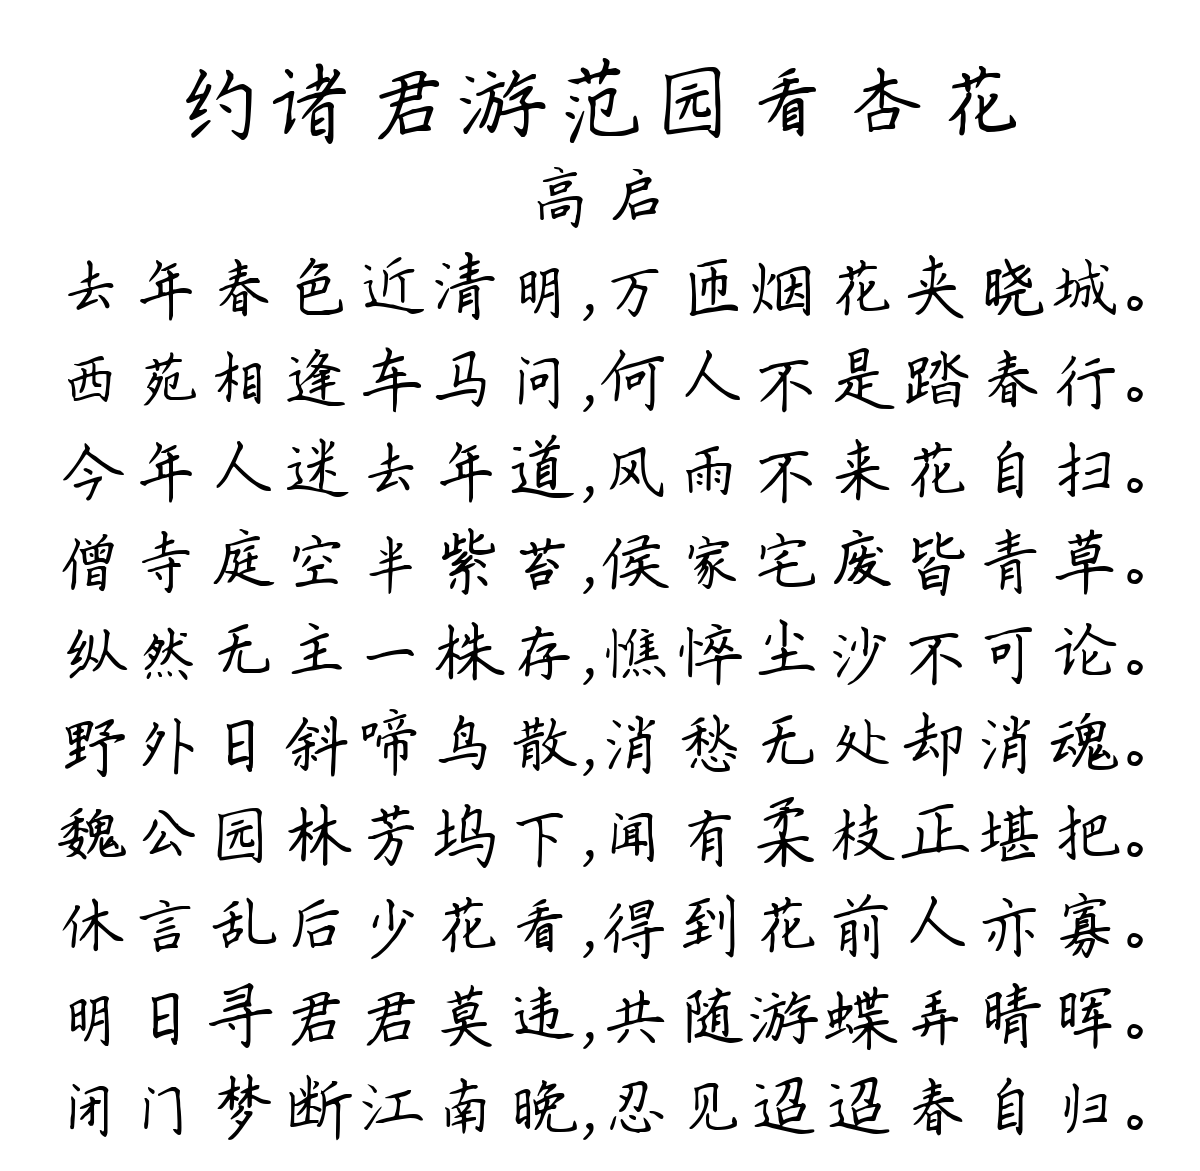 约诸君游范园看杏花
高启
去年春色近清明,万匝烟花夹晓城。
西苑相逢车马问,何人不是踏春行。
今年人迷去年道,风雨不来花自扫。
僧寺庭空半紫苔,侯家宅废皆青草。
纵然无主一株存,憔悴尘沙不可论。
野外日斜啼鸟散,消愁无处却消魂。
魏公园林芳坞下,闻有柔枝正堪把。
休言乱后少花看,得到花前人亦寡。
明日寻君君莫违,共随游蝶弄晴晖。
闭门梦断江南晚,忍见迢迢春自归。